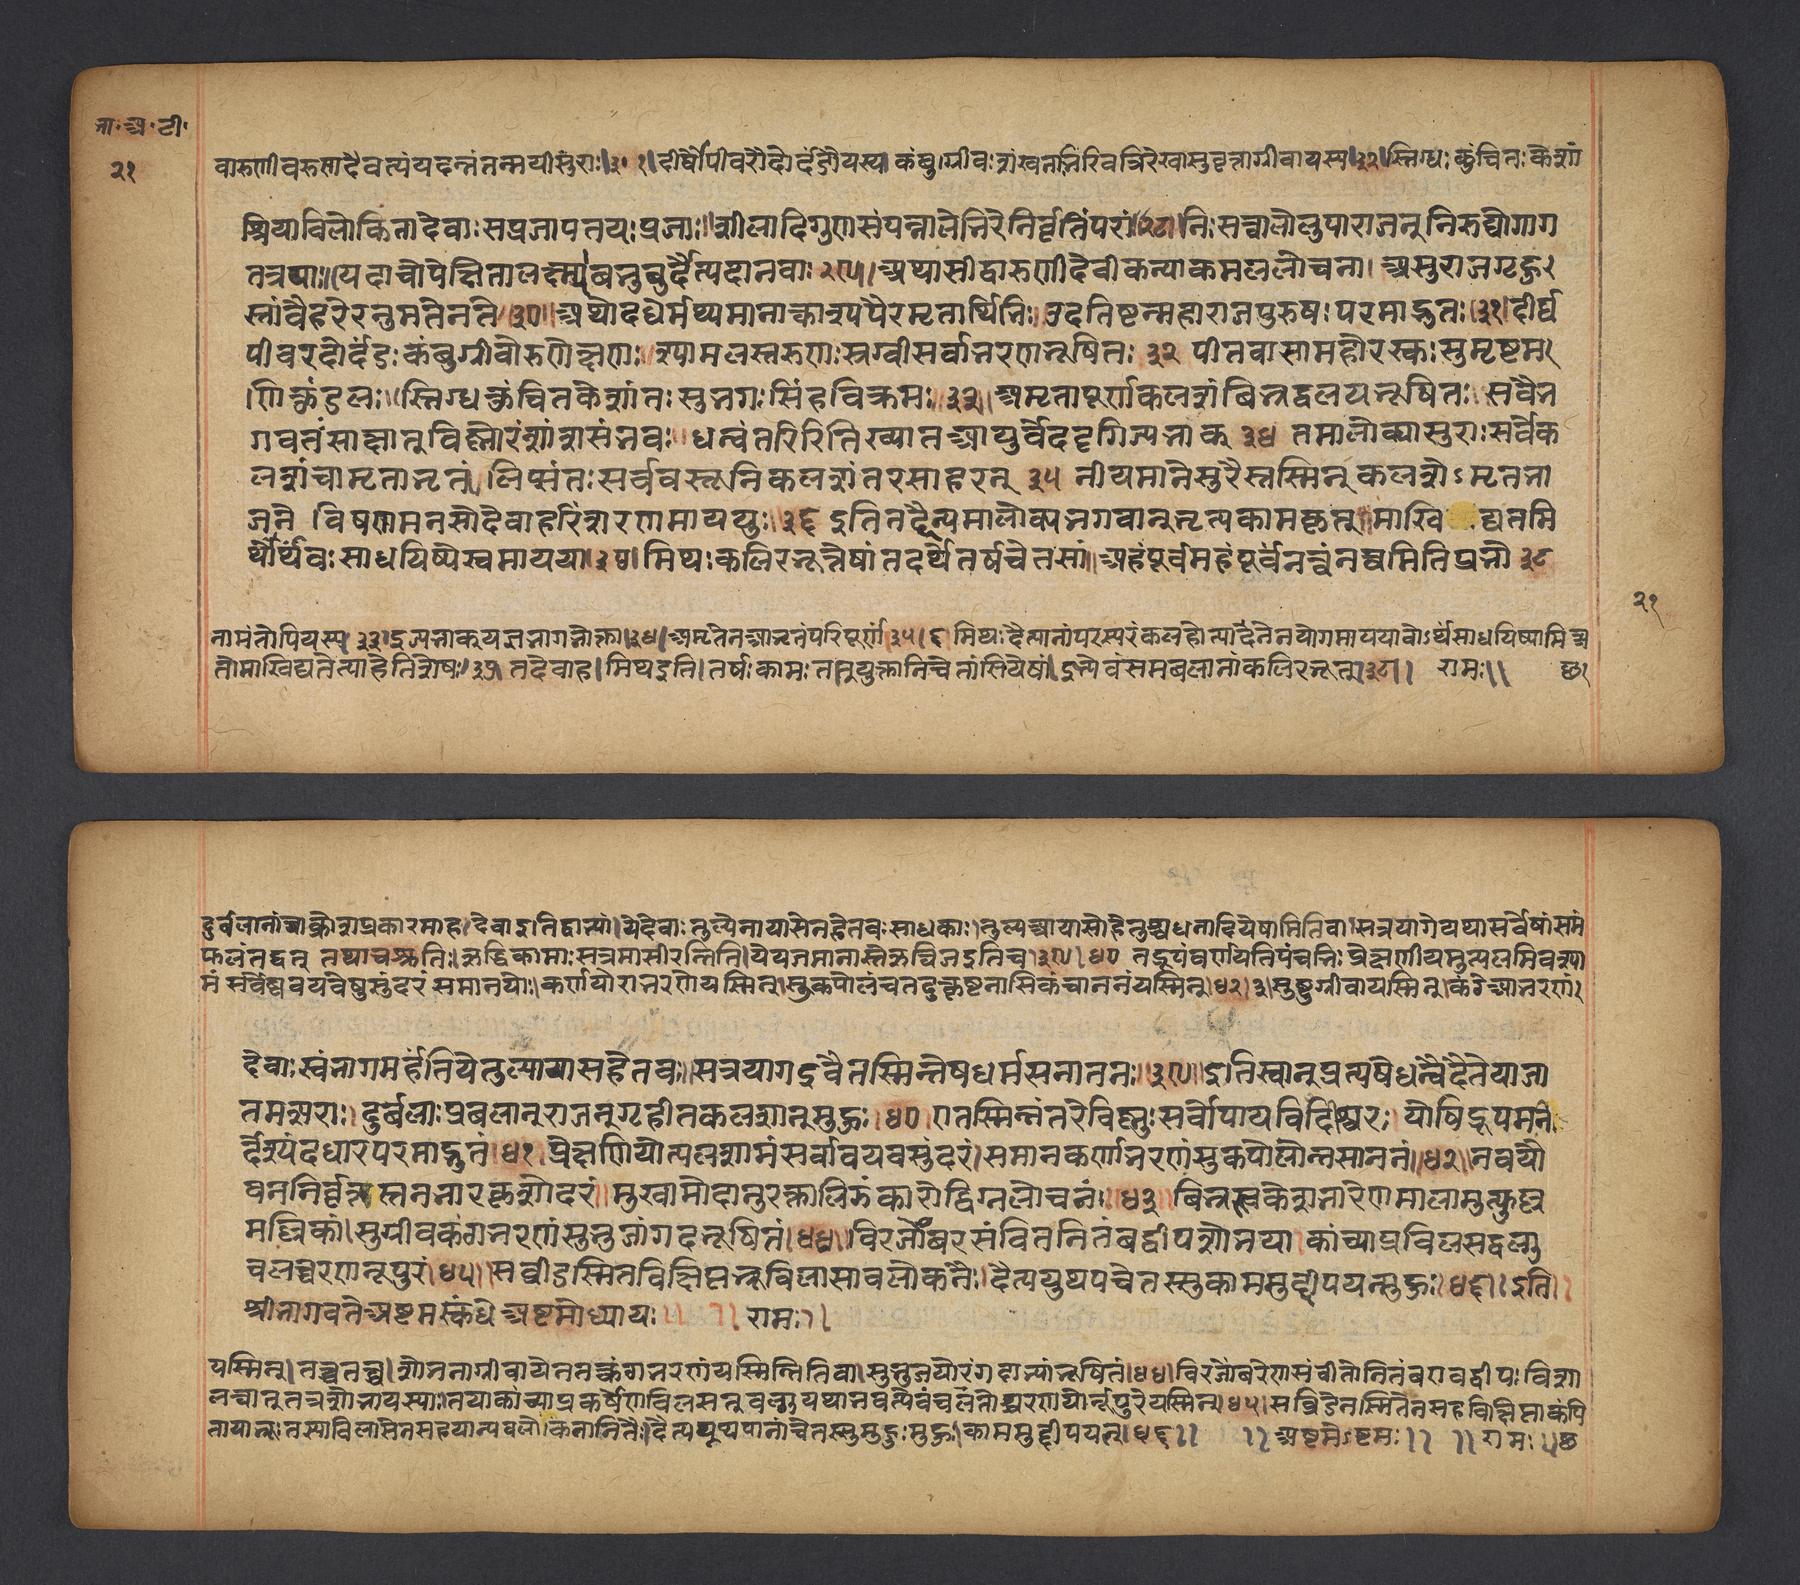 भा॰अ॰टी॰
२१
वारुणीवरुणदैवत्यंयदन्नंतन्मयीसुरा।।३०१।दीर्घौपीवरौदोर्दंडौयस्य।कंबुग्रीवःशंखवत्तिसृभिरिवत्रिरेखासुवृत्ताग्रीवायस्य।३२।स्निग्धःकुंचितःकेशां
श्रियाविलोकितादेवाःसप्रजापतयःप्रजाः।।शीलादिगुणसंपन्नालेभिरेनिर्वृतिंपरां।२८।निःसत्वालोलुपाराजन्निरुद्योगाग
तत्रपाः।।यदाचोपेक्षितालक्ष्म्याबभूवुर्दैत्यदानवाः२९।अथासीद्वारुणीदेवीकन्याकमललोचना।असुराजगृहु
स्तांवैहरेरनुमतेनते।३०।अथोदधेर्मथ्यमानात्काश्यपैरमृतार्थिभिः।उदतिष्टन्महाराजपुरुषःपरमाद्भुतः।३१।दीर्घ
पीवरदोर्दंडःकंबुग्रीवोरुणेक्षणः।श्यामलस्तरुणःस्रग्वीसर्वाभरणभूषितः३२पीतवासामहोरस्कःसुमृष्टम
णिकुंडलः।।स्निग्धकुंचितकेशांतःसुभगःसिंहविक्रमः।३३।अमृतापूर्णकलशंबिभ्रद्वलयभूषितः।सवैभ
गवतःसाक्षात्तुविष्णोरंशांशसंभवः।।धन्वंतरिरितिख्यातआयुर्वेददृगिज्यभाक्३४तमालोक्यासुराःसर्वेक
लशंचामृताभृतं।लिप्संतःसर्ववस्तूनिकलशंतरसाहरन्३५नीयमानेसुरैस्तस्मिन्कलशेऽमृतभा
जनेविषणमनसोदेवाहरिंशरणमाययुः।३६इतितद्दैन्यमालोक्यभगवान्भृत्यकामकृत्।माखिद्यतमि
थोर्थंवःसाधयिष्येस्वमायया।३७।मिथःकलिरभूत्तेषांतदर्थेतर्षचेतसां।अहंपूर्वमहंपूर्वंनत्वंनत्वमितिप्रभो३८
२१
नामंतोपियस्य३३।इज्यभाक्यज्ञभागभोक्ता।३४।अमृतेनआभृतंपरिपूर्णं।३५।६मिथःदैत्यानांपरस्परंकलहोत्पादनेनयोगमाययावोऽर्थंसाधयिष्यामिअ
तोमाखिद्यतेत्याहेतिशेषः।३७।तदेवाह।मिथइति।तर्षःकामःतमुयुक्तानिचेतांसियेषां।इत्येवंसमबलानांकलिरभूत्।३८।।रामः।।छ।
दुर्बलानांचाक्रोशप्रकारमाह।देवाइतिद्वाभ्यां।येदेवाःतुल्येनायासेनहेतवःसाधकाः।तुल्यआयासोहेतुश्चधनादियेषामितिवा।सत्रयागेयथासर्वेषांसमं
फलंतद्वत्तथाचश्रुतिः।ऋद्धिकामाःसत्रमासीरन्निति।येयजमानास्तेऋत्विजइतिच।३९।४०तद्रूपंवर्णयतिपंचभिः।प्रेक्षणीयमुत्पलमिवश्या
मंसर्वेष्ववयवेषुसुंदरंसमानयोः।कर्णयोराभरणेयस्मिन्।सुकपोलंचतदुत्कृष्टनासिकंचाननंयस्मिन्।४२।३।सुष्टुग्रीवायस्मिन्।कंठेआभरणं।
देवाःस्वंभागमर्हंतियेतुल्यायासहेतवः।।सत्रयागइवैतस्मिन्नेषधर्मसनातनः।३९।इतिस्वान्प्रत्यषेधन्वैदैतेयाजा
तमत्सराः।दुर्बलाःप्रबलान्राजन्गृहीतकलशान्मुहुः।४०।एतस्मिन्नंतरेविष्णुःसर्वोपायविदीश्वरः।योषिद्रूपमनि
र्देश्यंदधारपरमाद्भुतं।४१।प्रेक्षणियोत्पलश्यामंसर्वावयवसुंदरं।समानकर्णाभरणंसुकपोलोन्नसाननं।।४२।नवयौ
वननिर्वृत्तस्तनभारकृशोदरं।मुखामोदानुरक्तालिझंकारोद्विग्नलोचनं।४३बिभ्रत्स्वकेशभारेणमालामुत्फुल्ल
मल्लिकां।सुग्रीवकंठाभरणंसुभुजांगदभूषितं।४४।विरजोंबरसंवितनितंबद्वीपशोभया।कांच्याप्रविलसद्वल्गु
चलच्चरणनूपुरं।४५।सव्रीडस्मितविक्षिप्तभ्रूविलासावलोकनैः।दैत्ययुथपचेतस्सुकाममुद्दीपयन्मुहुः।४६।।इति।।
श्रीभागवतेअष्टमस्कंधेअष्टमोध्यायः।।।।रामः।।
यस्मिन्।तच्चतच्च।शोभनाग्रीवायेनतत्कंठाभरणंयस्मिन्नितिवा।सुभुजयोरंगदाभ्यांभूषितं।४४।विरजांबरेणसंवीतोनितंबएवद्वीपःविशा
लत्वात्तत्रशोभायस्याः।तयाकांच्याप्रकर्षेणविलसत्वल्गुयथाभवत्येवंचलतोश्चरणयोर्नूपुरेयस्मिन्।४५।सव्रिडेनस्मितेनसहविक्षिप्ताकंपि
तायाभ्रूःतस्याविलासेनसहयान्यवलोकनानितैः।दैत्ययूथपानांचेतस्सुमुहुःमुहुः।काममुद्दीपयत्।४६।।।।अष्टमेऽष्टमः।।।।रामः।छ